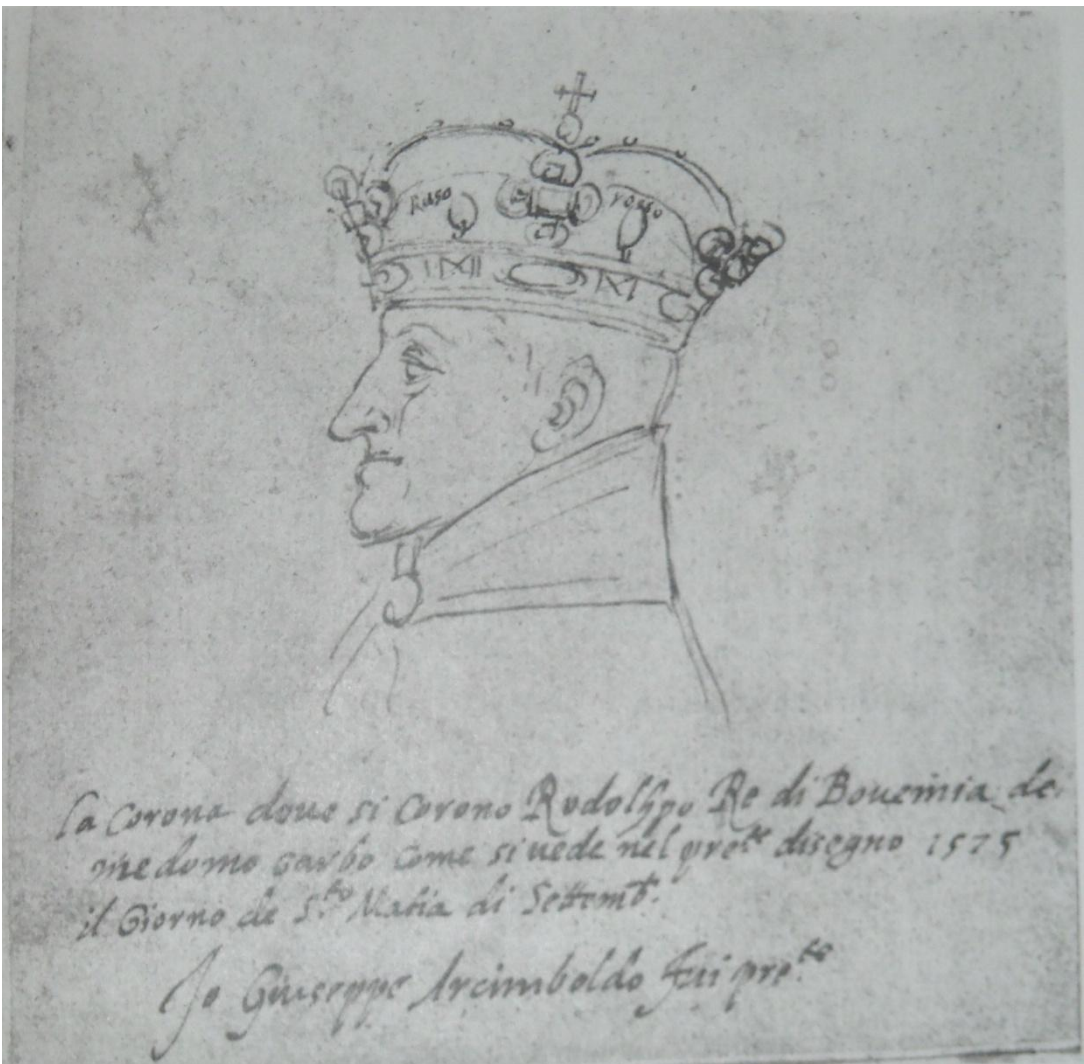 Rosso rosso
la corona doue si corono Rodolfpo Re di Bouemia de
medemo garbo come si uede nel pre.te disegno 1575
il Giorno de S.to Matia di Settemb.
Jo Giuseppe Arcimboldo fui pre.te